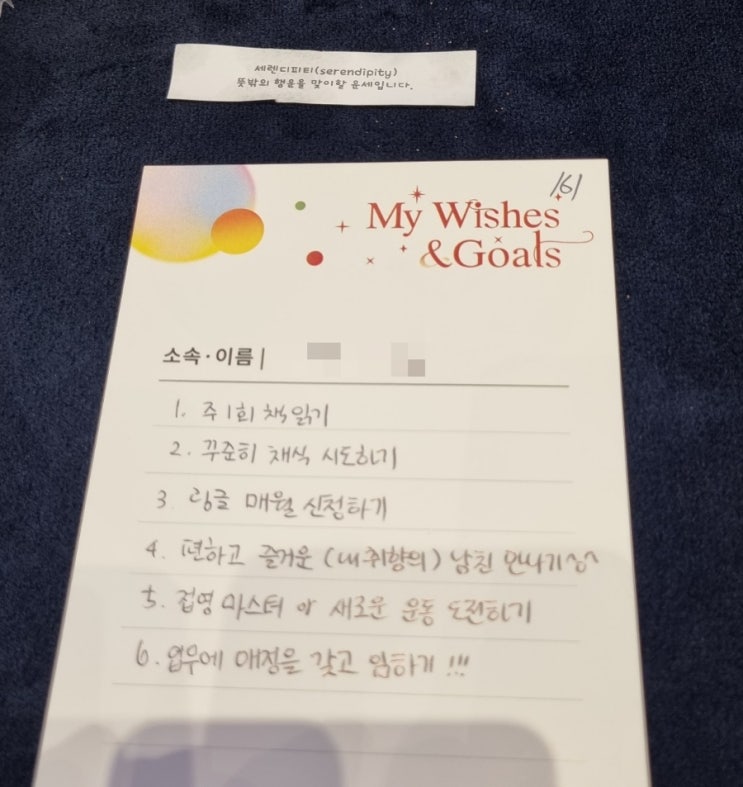 세렌디피티(serendipity)
뜻밖의 행운을 맞이할 운세입니다.
161
My Wishes
&Goals
소속·이름 |
1. 주 1회 책 읽기
2. 꾸준히 채식 시도하기
3 링글 매월 신청하기
4. 편하고 즐거운 (내 취향의) 남친 만나기^o^
5. 접영 마스터 or 새로운 운동 도전하기
6. 업무에 애정을 갖고 임하기 !!!